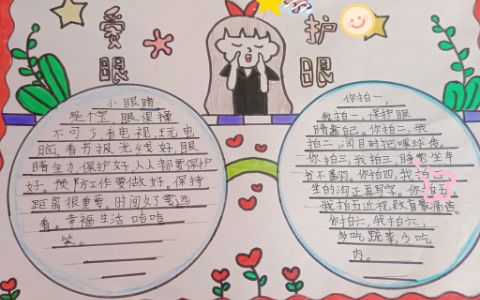 爱眼
护眼
小眼睛
是个宝,眼保操
不可少看电视,玩电
脑,看书报,光线好,眼
睛生力,保护好,人人都要保护
好。预防工作要做好。保持
距离很重要。时间久了需远
看。幸福生活哈哈
笑。
你拍一,
我拍一,保护眼
睛靠自己。你拍二,我
拍二,
你拍三,我拍三,
书不看躺。你拍四,我拍
你拍五
我拍五近视致盲要痛苦。
你拍六,我拍六,
多吃蔬菜,少吃
肉。